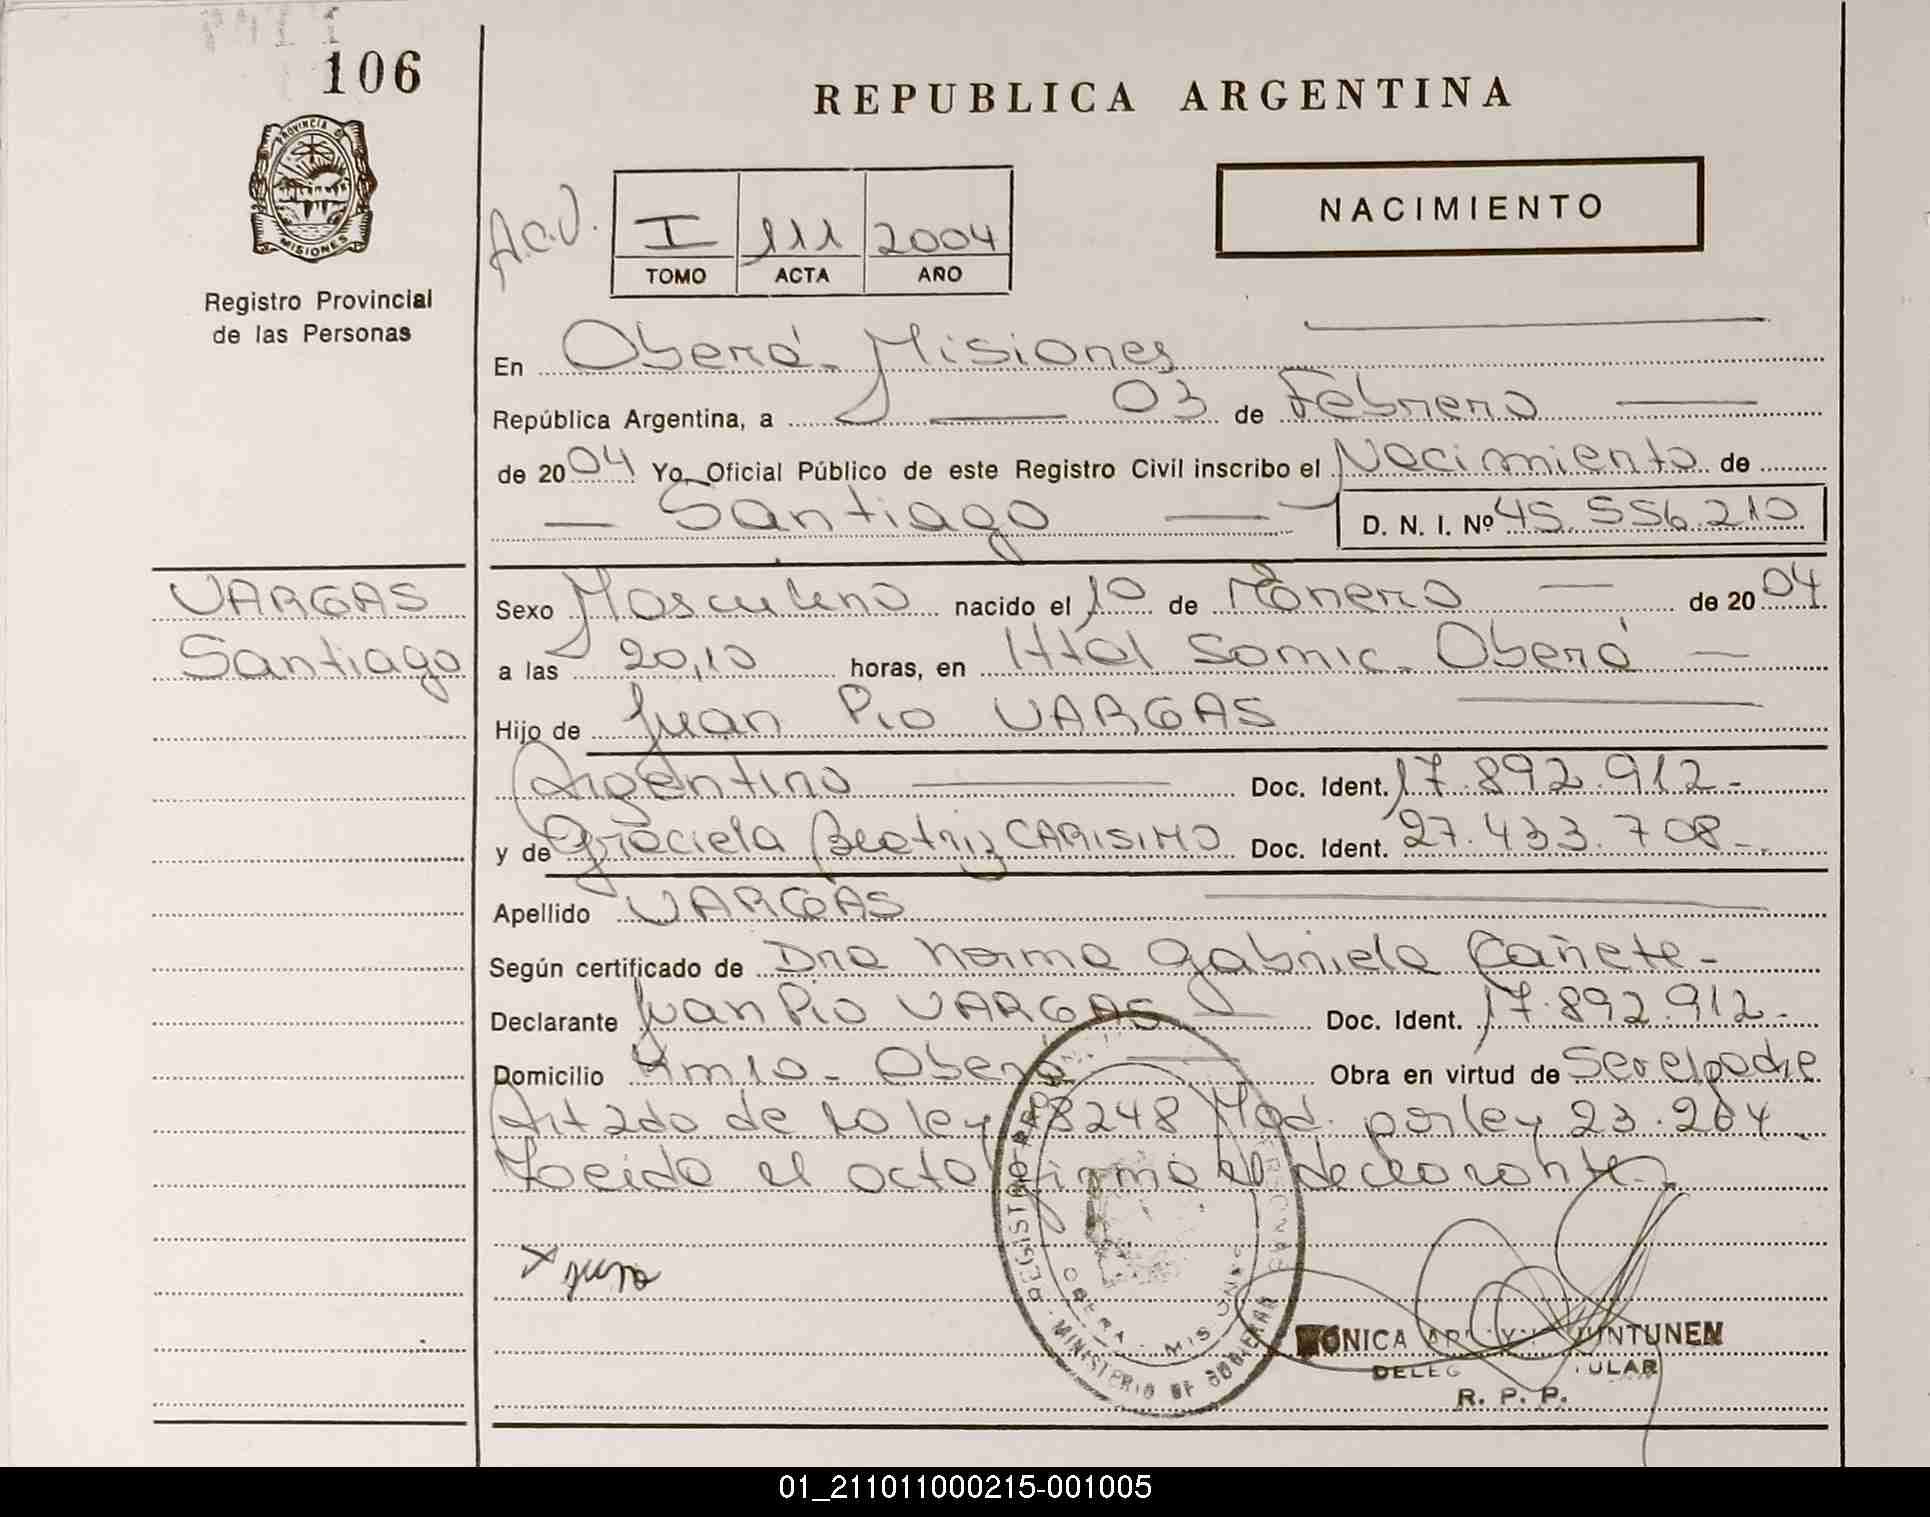 106
REPUBLICA ARGENTINA
PROVINCIA DE
MISIONES
Registro Provincial
de las Personas
A.C.V.
I 111 2004
TOMO ACTA AÑO
NACIMIENTO
En Oberá - Misiones
República Argentina, a 03 de Febrero
de 2004 Yo, Oficial Público de este Registro Civil inscribo el Nacimiento de
Santiago D. N. I. Nº 45.556.210
VARGAS
Santiago
Sexo Masculino nacido el 10 de Enero de 2004
a las 20,10 horas, en Htal Samic - Oberá
Hijo de Juan Pio VARGAS
Argentino Doc. Ident. 17.892.912-
y de Graciela Beatriz CARISIMO Doc. Ident. 27.433.708-
Apellido VARGAS
Según certificado de Dra Norma Gabriela Cañete-
Declarante Juan Pio VARGAS Doc. Ident. 17.892.912-
Domicilio Km 10 - Oberá Obra en virtud de Ser el padre
Art 2do de la ley 18248 Mod. por ley 23.264
Leida el acta firma el declarante.
x
REGISTRO
OBERA - MISIONES
MINISTERIO DE GOBIERNO
MONICA UNTUNEN
R. P. P.
01_211011000215-001005